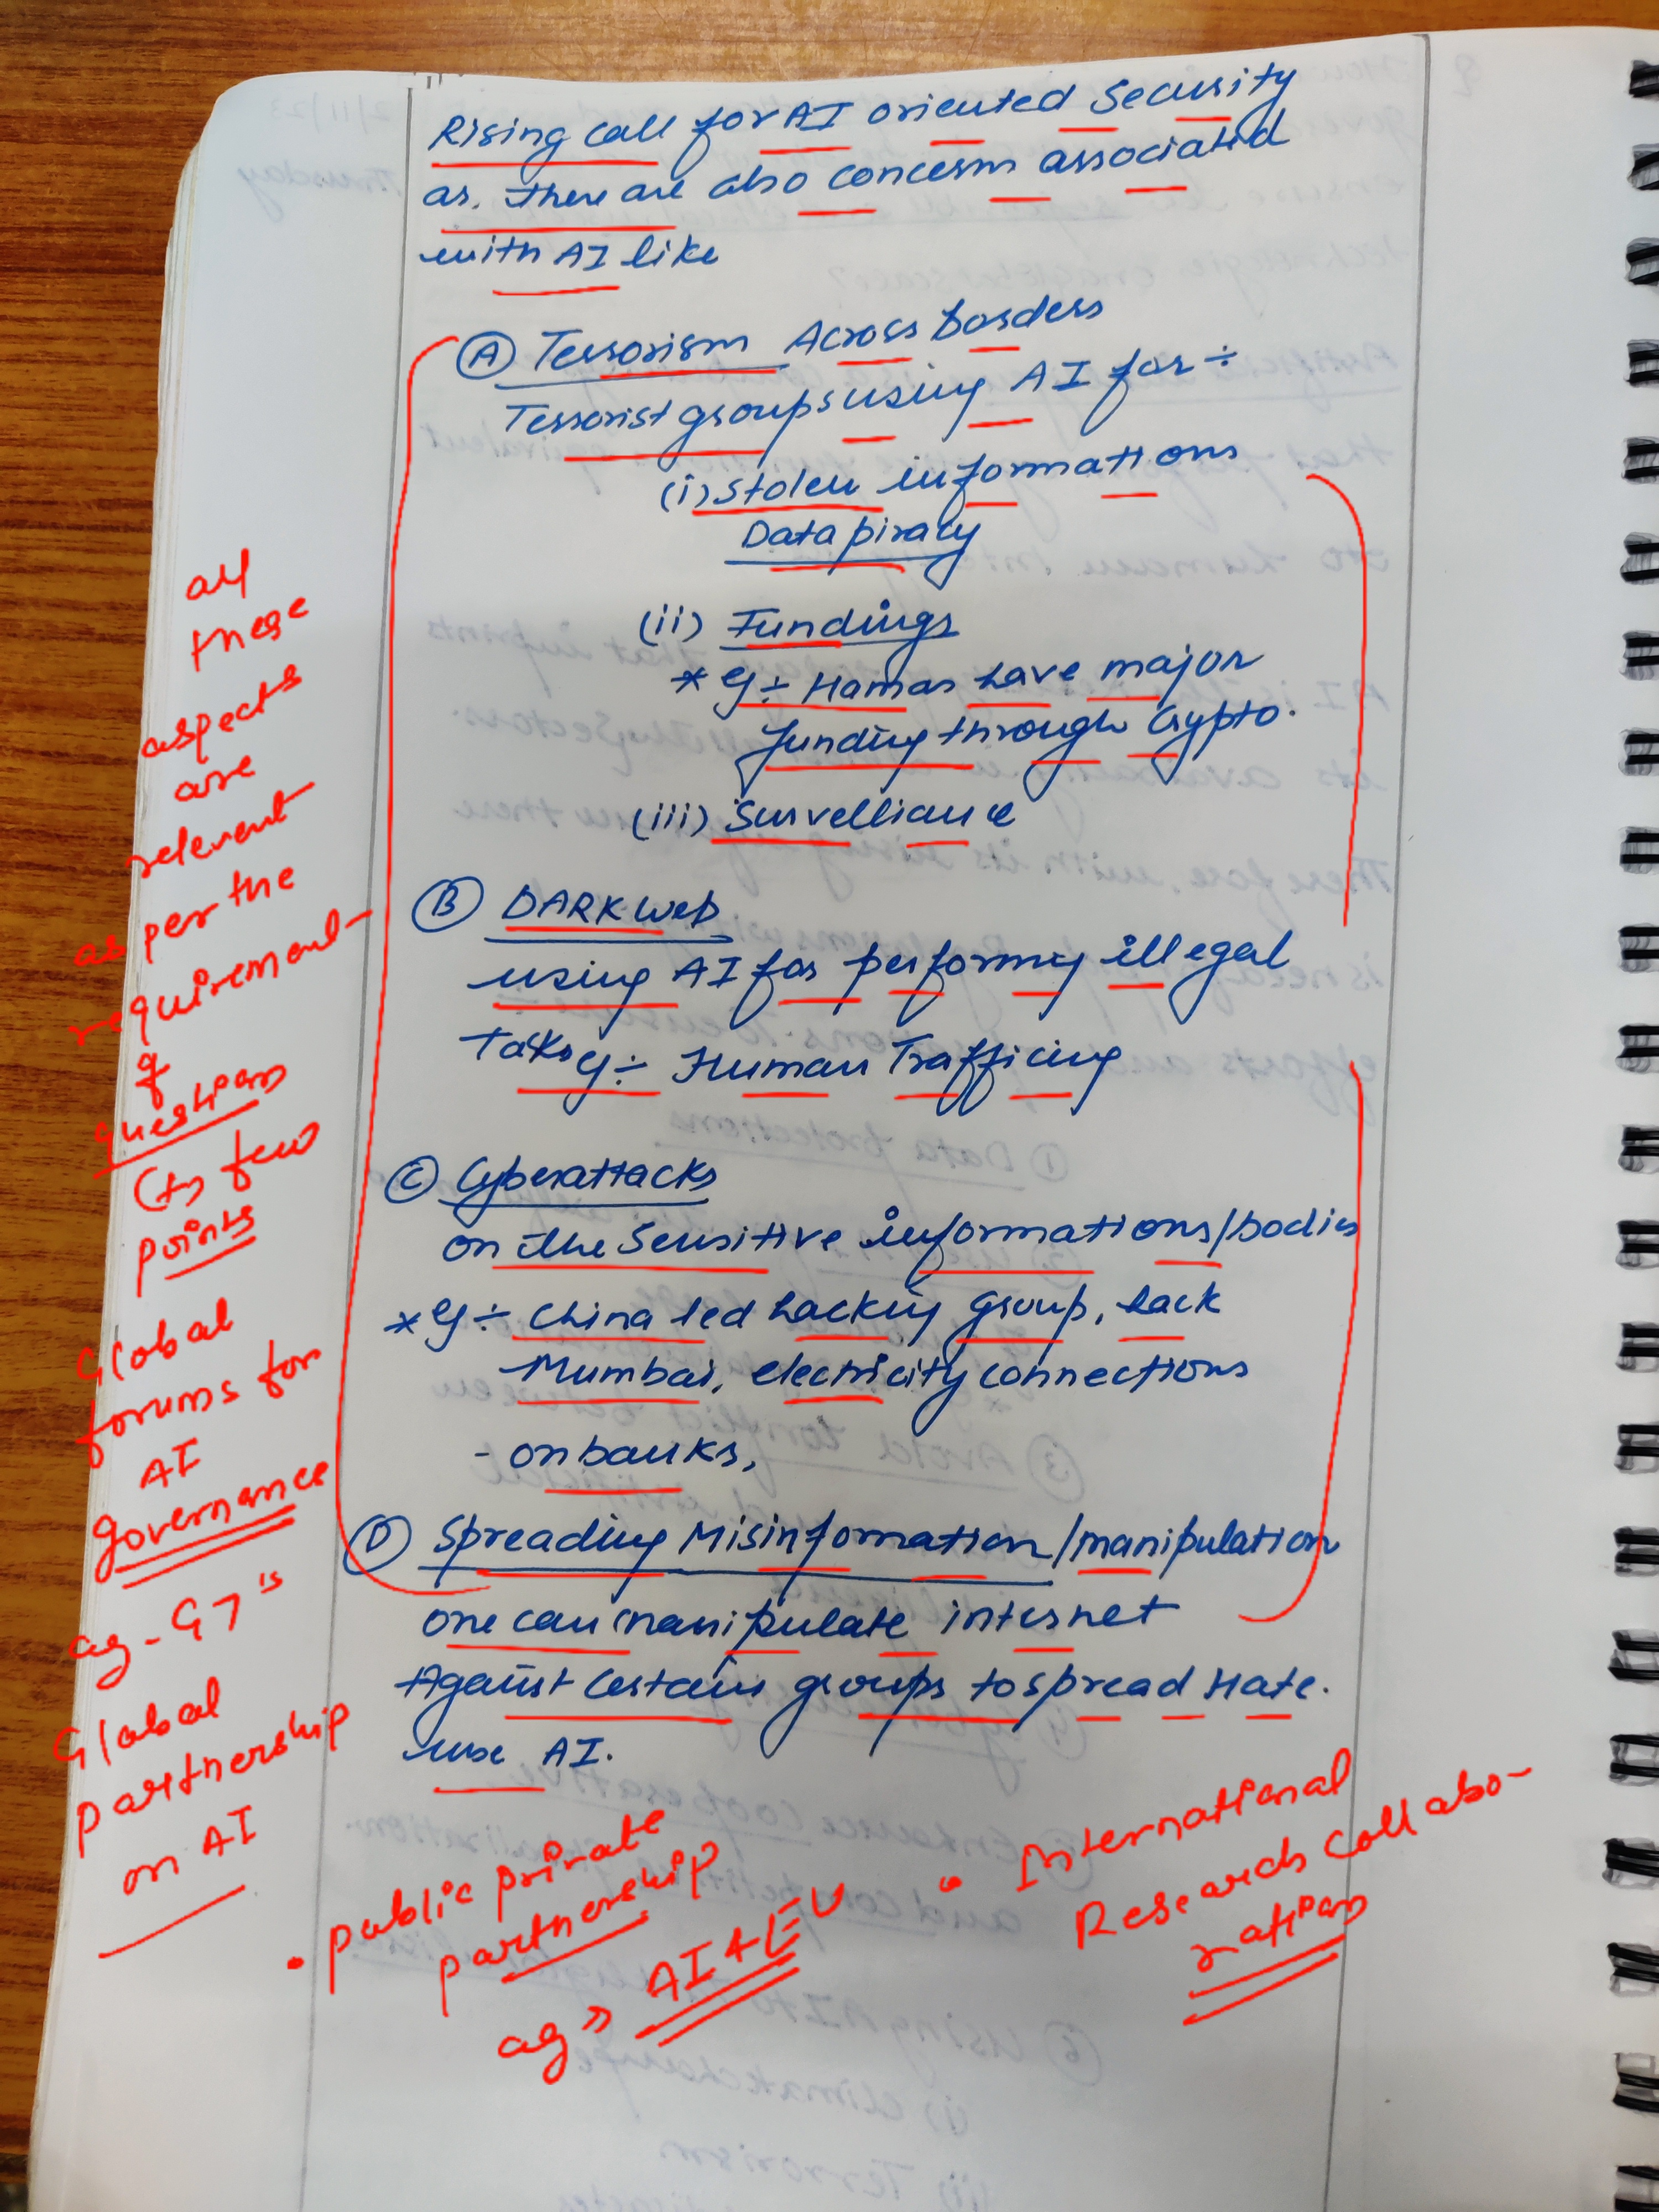 Rising call for AI oriented Security
as, there are also concern associated
with AI like
(A) Terrorism Across borders
Terrorist groups using AI for ÷
(i) Stolen informations
Data piracy
(ii) Fundings
* eg ÷ Hamas have major
funding through Crypto.
(iii) Survelliance
(B) DARK Web
using AI for performing illegal
Taks eg ÷ Human Trafficing
(C) Cyberattacks
on the Sensitive informations/bodies
* eg ÷ China led hacking group, hack
Mumbai, electricity connections
- on banks,
(D) Spreading Misinformation/manipulation
one can manipulate internet
Against certain groups to spread Hate.
use AI.
all
these
aspects
are
relevent
as per the
requirement
of
question
few
points
Global
forums for
AI
governance
eg - G7's
Global
partnership
on AI
• public private
partnership
eg → AI4EU
• International
Research collabo-
ration